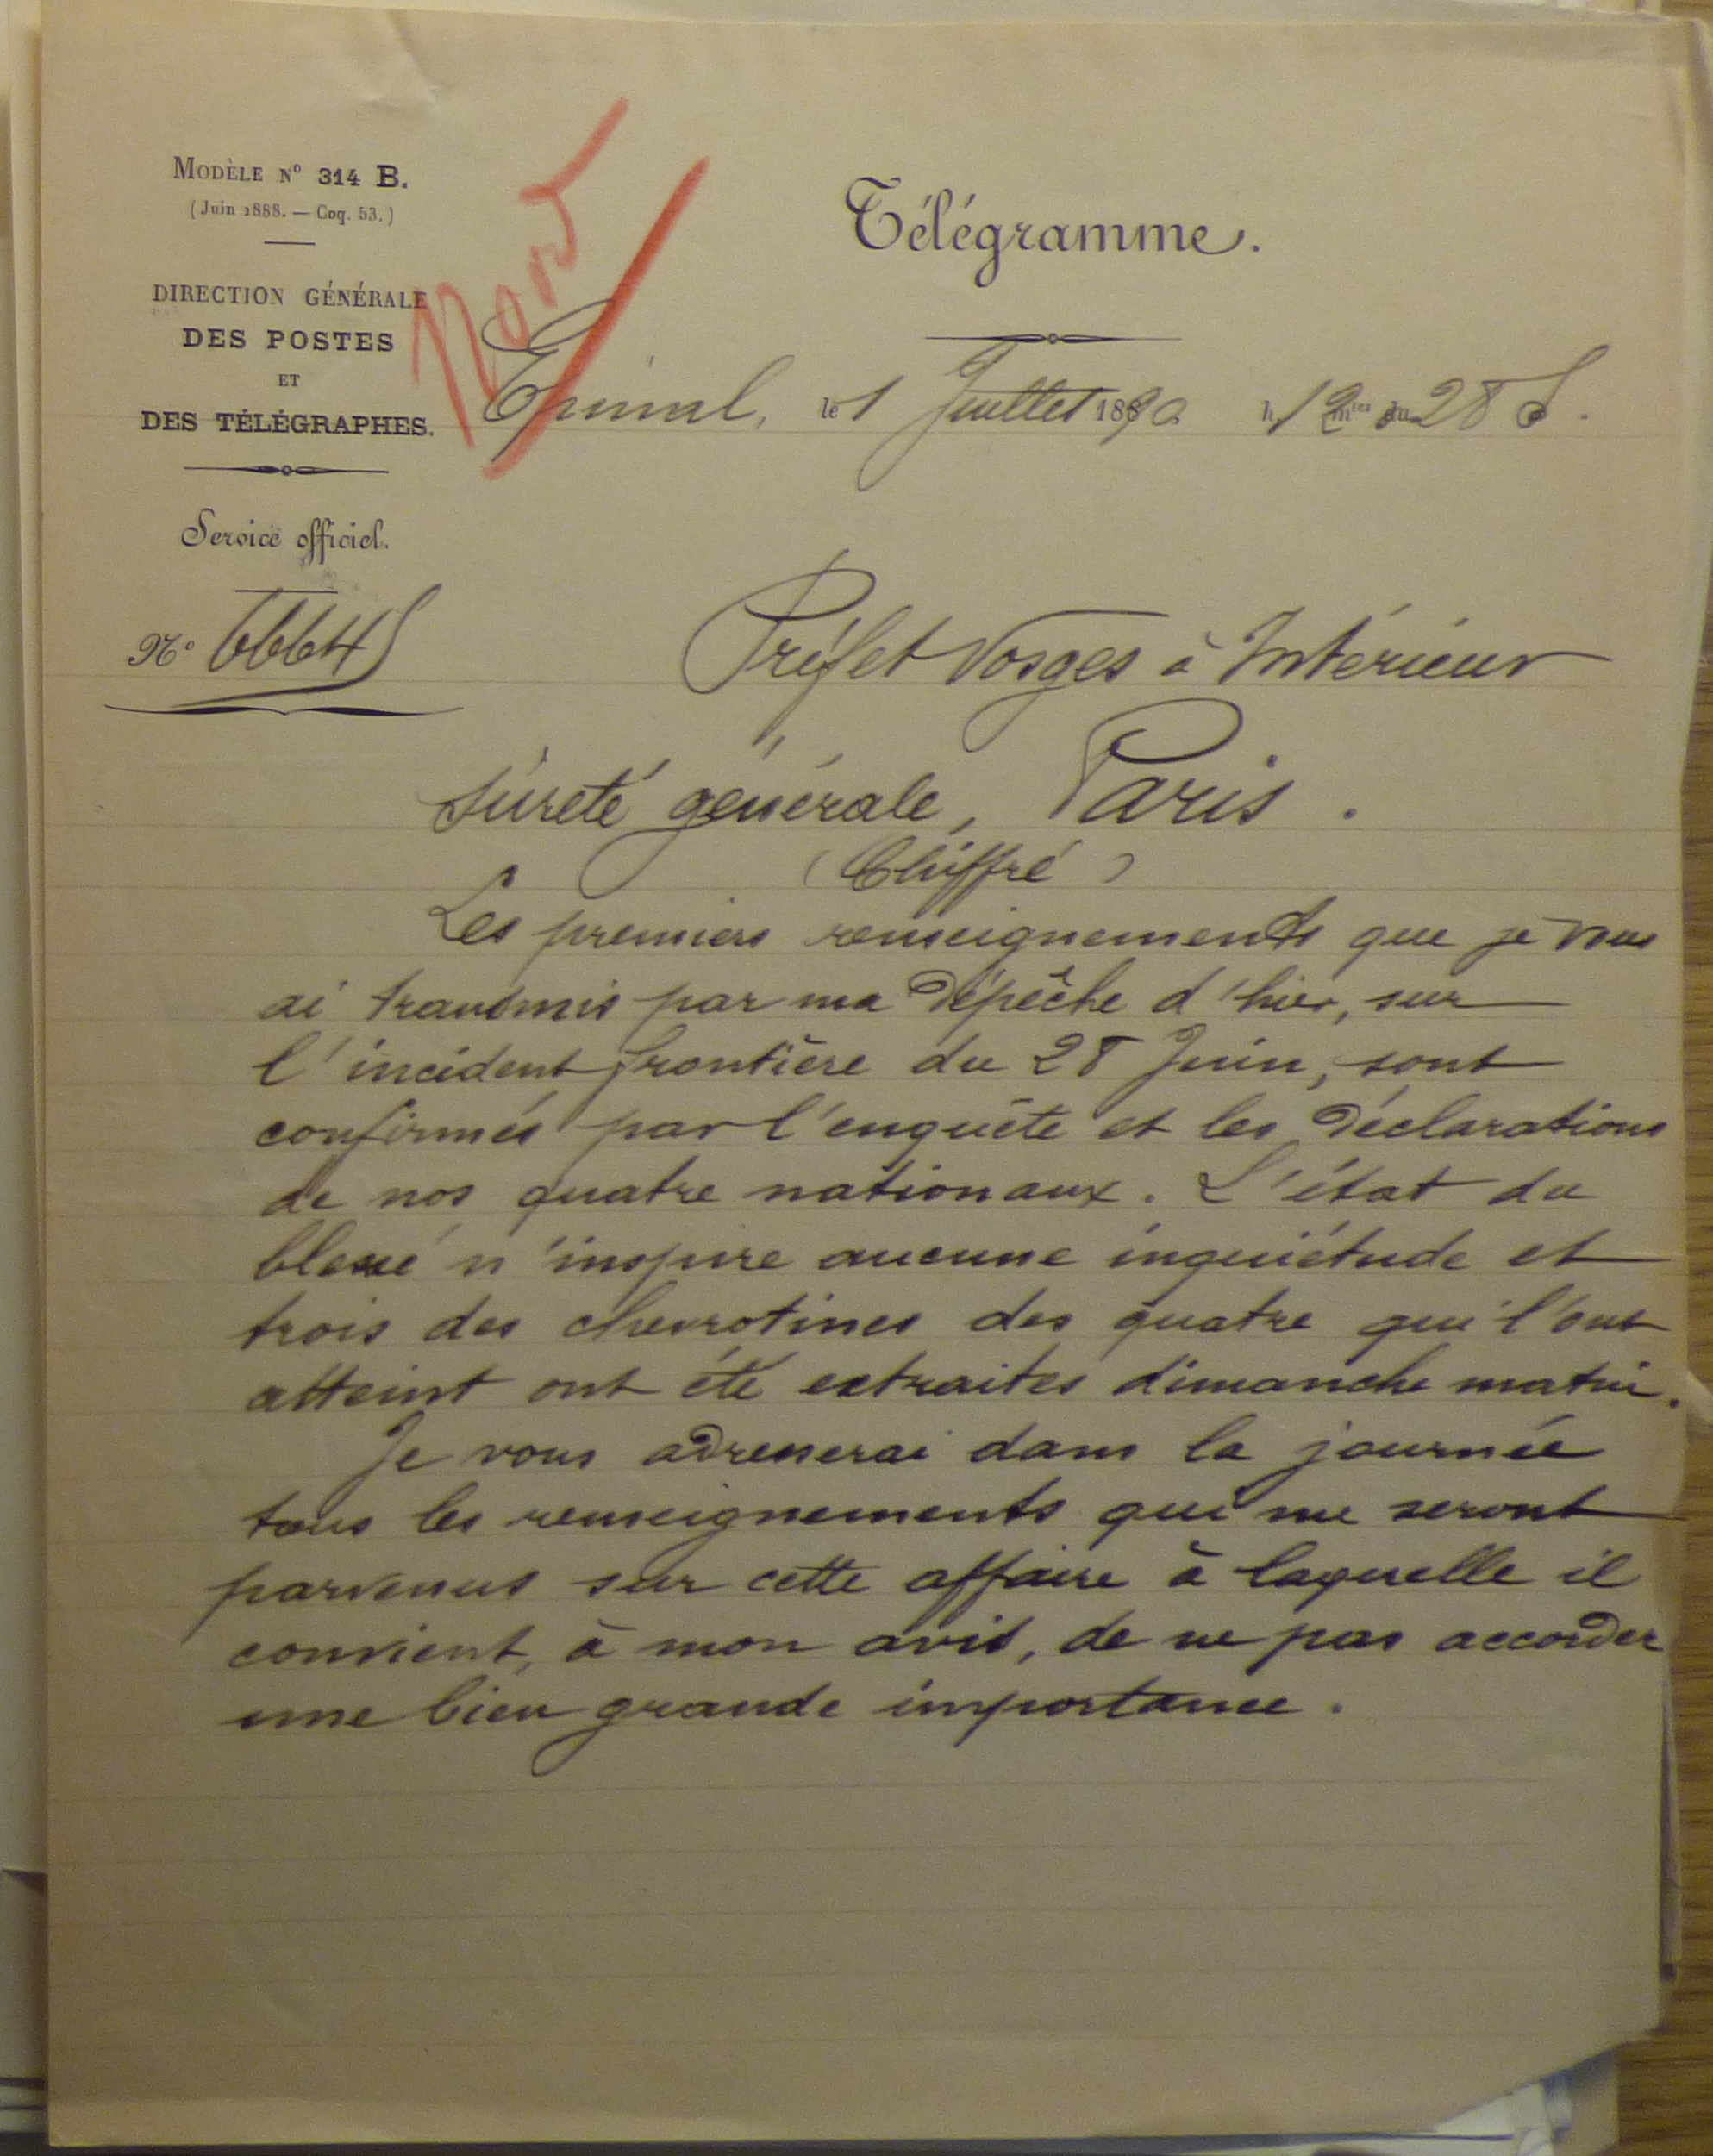 MODÈLE N° 314 B.
(Juin 1888. — Coq. 53.)
DIRECTION GÉNÉRALE
DES POSTES
ET
DES TÉLÉGRAPHES.
Service officiel.
N°
Télégramme.
Epinal, le 1 Juillet 1890 h 12 28 S.
Préfet Vosges à Intérieur
Sûreté générale, Paris.
(Chiffré)
Les premiers renseignements que je vous
ai transmis par ma dépêche d'hier, sur
l'incident frontière du 28 Juin, sont
confirmés par l'enquête et les déclarations
de nos quatre nationaux. L'état du
blessé n'inspire aucune inquiétude et
trois des chevrotines des quatre qui l'ont
atteint ont été extraites dimanche matin.
Je vous adresserai dans la journée
tous les renseignements qui me seront
parvenus sur cette affaire à laquelle il
convient, à mon avis, de ne pas accorder
une bien grande importance.